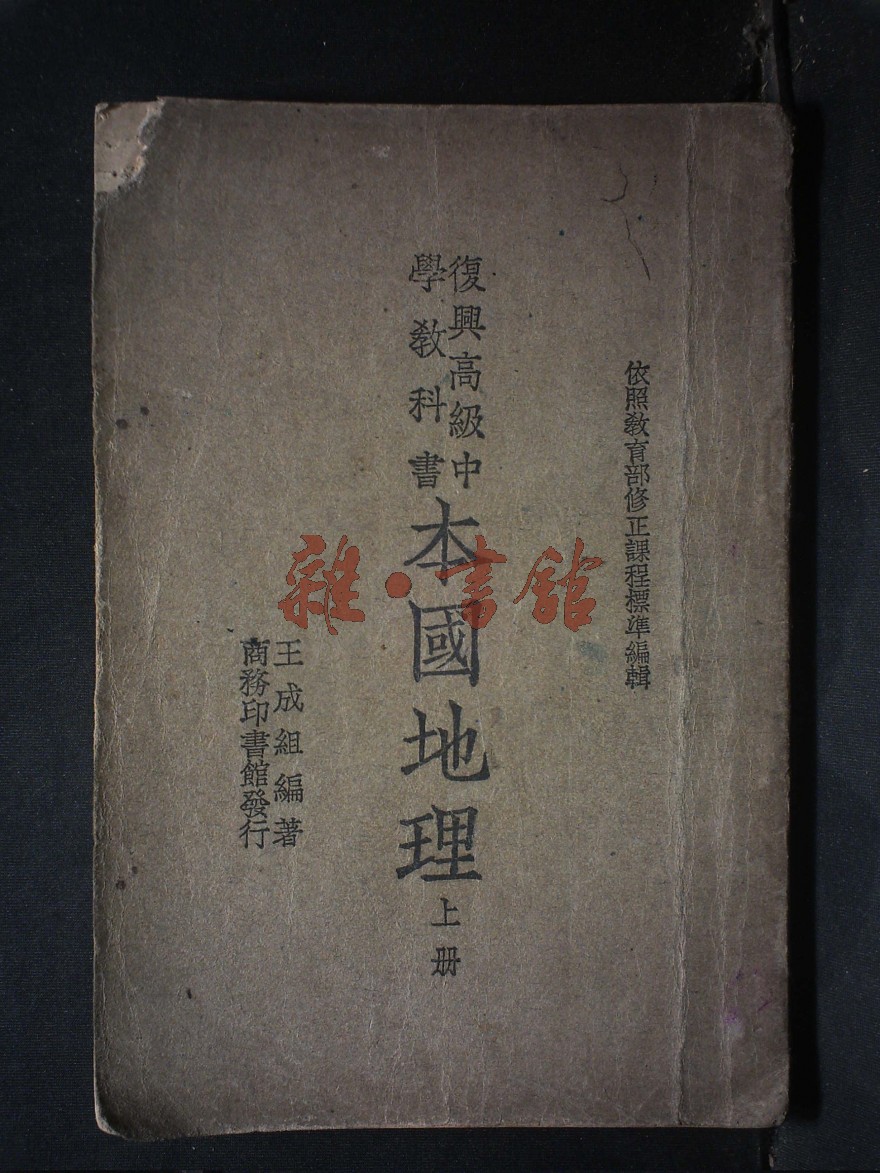 依照教育部修正課程標準編輯
復興高級中
學教科書
本國地理
上册
王成組編著
商務印書館發行
雜·書館